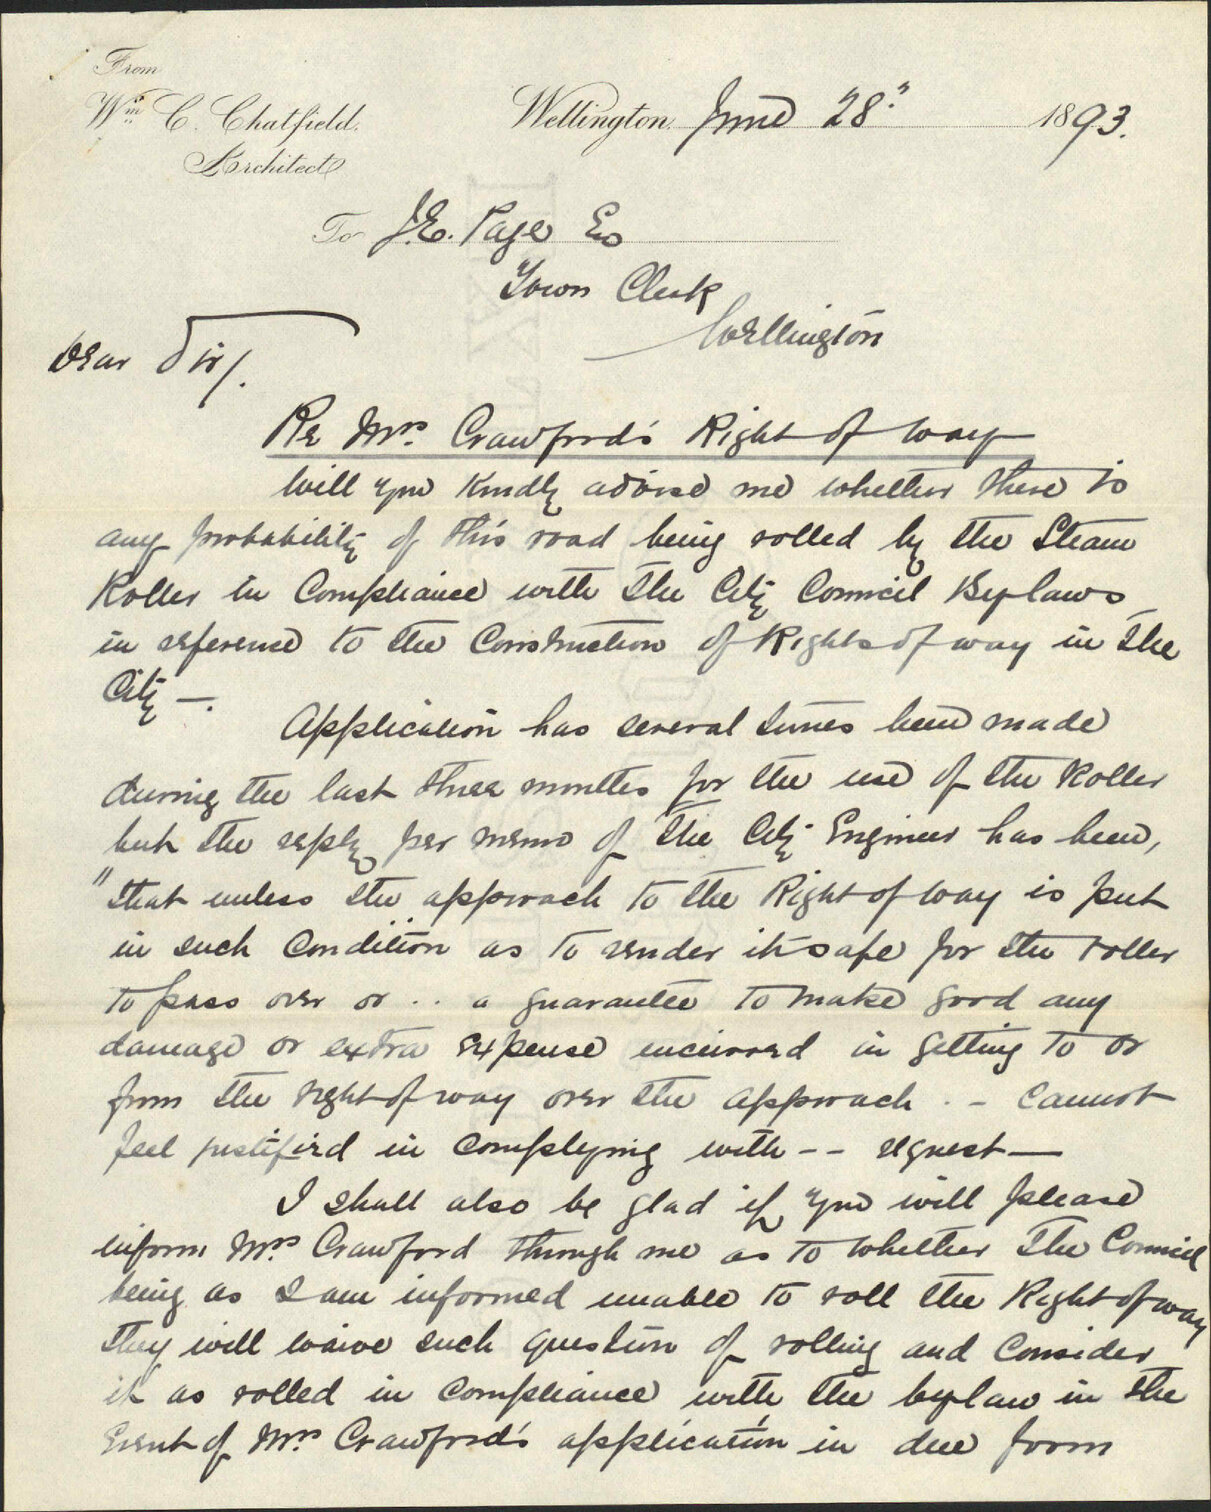 From
Wm. C. Chatfield.
Architect
Wellington June 28" 1893.
To J.E. Page Es
Town Clerk
Wellington
Dear Sir/.
Re Mrs. Crawford's Right of Way
Will you Kindly advise me whether there is
any probability of this road being rolled by the Steam
Roller in Compliance with the City Council Bylaws
in reference to the Construction of Rights of way in the
City —.
Application has several times been made
during the last three months for the use of the Roller
but the reply per memo of the City Engineer has been,
"that unless the approach to the Right of Way is put
in such Condition as to render it safe for the roller
to pass over or .. a guarantee to make good any
damage or extra expense incurred in getting to or
from the right of way over the approach . - Cannot
feel justified in complying with -- request —
I shall also be glad if you will please
inform Mrs Crawford through me as to whether the Council
being as I am informed unable to roll the Right of way
they will waive such question of rolling and Consider
it as rolled in compliance with the bylaw in the
Event of Mrs Crawford's application in due form